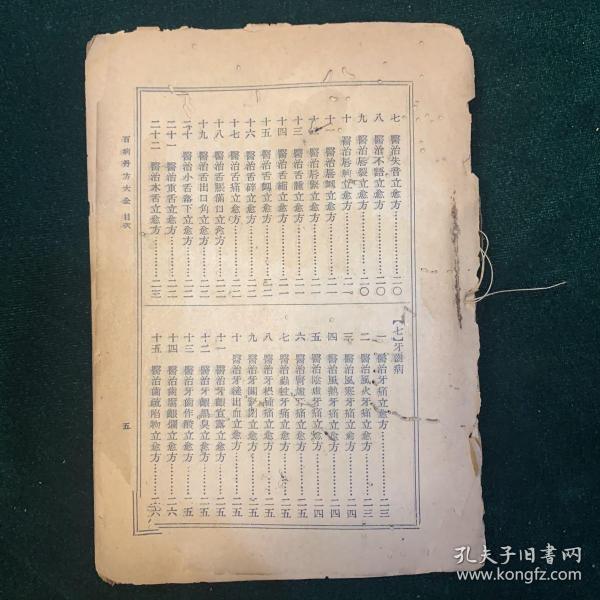 七 醫治失音立愈方……二〇
八 醫治不語立愈方……二〇
九 醫治唇裂立愈方……二〇
十 醫治唇 立愈方……二一
十一 醫治唇 立愈方……二一
十二 醫治唇緊立愈方……二一
十三 醫治舌腫立愈方……二一
十四 醫治舌 立愈方……二一
十五 醫治舌 立愈方……二二
十六 醫治舌碎立愈方……二二
十七 醫治舌痛立愈方……二二
十八 醫治舌脹滿口立愈方……二二
十九 醫治舌出口角立愈方……二二
二十 醫治小舌落下立愈方……二二
二十一 醫治重舌立愈方……二二
二十二 醫治木舌立愈方……二三
【七】牙齒病
一 醫治牙痛立愈方……二三
二 醫治風火牙痛立愈方……二三
三 醫治風寒牙痛立愈方……二四
四 醫治風熱牙痛立愈方……二四
五 醫治陰虛牙痛立愈方……二四
六 醫治腎虛牙痛立愈方……二五
七 醫治蟲蛀牙痛立愈方……二五
八 醫治牙根腫痛立愈方……二五
九 醫治牙關緊閉立愈方……二五
十 醫治牙縫出血立愈方……二五
十一 醫治牙齦宣露立愈方……二五
十二 醫治牙齦黑臭立愈方……二五
十三 醫治牙齒作酸立愈方……二五
十四 醫治齒 齦爛立愈方……二六
十五 醫治齒疏陷物立愈方……二六
百病丹方大全 目次
五
孔夫子旧書网
www.kongfz.com